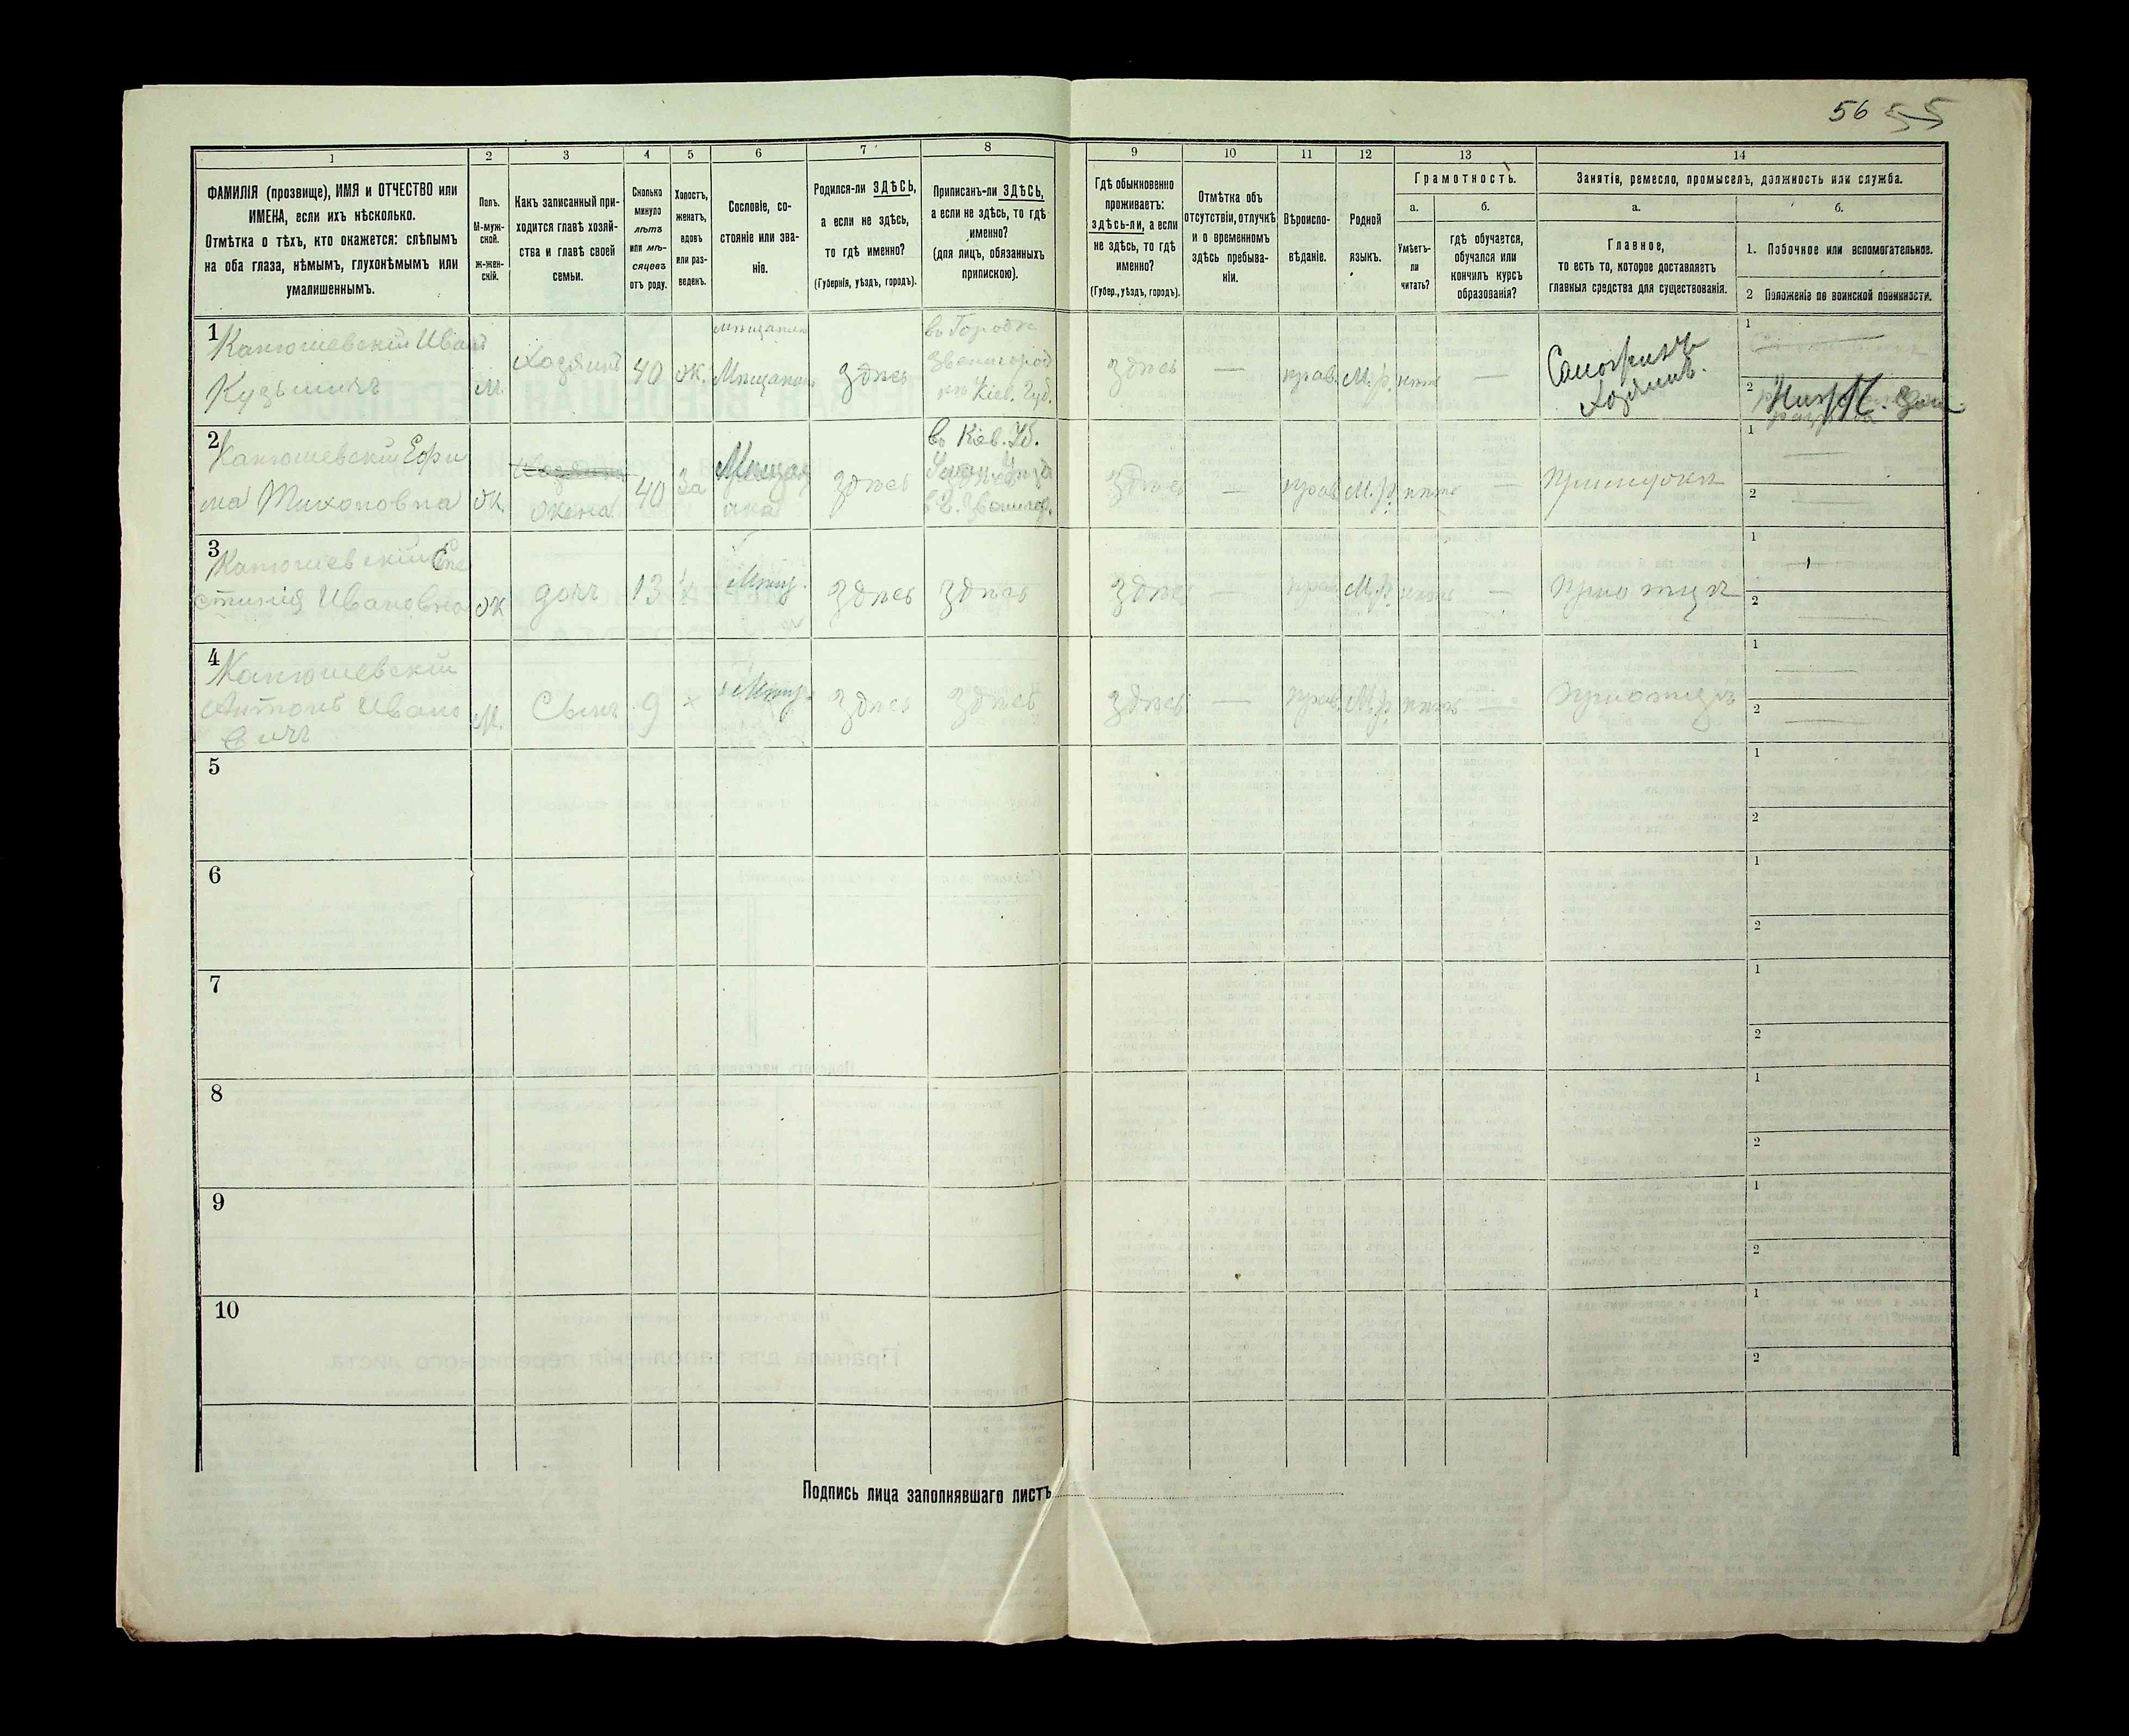 56 55
1 2 3 4 5 6 7 8 9 10 11 12 13 14
ФАМИЛІЯ (прозвище), ИМЯ и ОТЧЕСТВО или
ИМЕНА, если ихъ нѣсколько.
Отмѣтка о тѣхъ, кто окажется: слѣпымъ
на оба глаза, нѣмымъ, глухонѣмымъ или
умалишеннымъ.
Полъ.
М-муж-
ской.
ж-жен-
скій.
Какъ записанный при-
ходится главѣ хозяй-
ства и главѣ своей
семьи.
Сколько
минуло
лѣтъ
или мѣ-
сяцевъ
отъ роду.
Холостъ,
женатъ,
вдовъ
или раз-
веденъ.
Сословіе, со-
стояніе или зва-
ніе.
Родился-ли ЗДѢСЬ,
а если не здѣсь,
то гдѣ именно?
(Губернія, уѣздъ, городъ).
Приписанъ-ли ЗДѢСЬ,
а если не здѣсь, то гдѣ
именно?
(для лицъ, обязанныхъ
припискою).
Гдѣ обыкновенно
проживаетъ:
здѣсь-ли, а если
не здѣсь, то гдѣ
именно?
(Губер., уѣздъ, городъ).
Отмѣтка объ
отсутствіи, отлучкѣ
и о временномъ
здѣсь пребыва-
ніи.
Вѣроиспо-
вѣданіе.
Родной
языкъ.
Грамотность.
а.
Умѣетъ-
ли
читать?
б.
гдѣ обучается,
обучался или
кончилъ курсъ
образованія?
Занятіе, ремесло, промыселъ, должность или служба.
а.
Главное,
то есть то, которое доставляетъ
главныя средства для существованія.
б.
1. Побочное или вспомогательное.
2 Положеніе по воинской повинности.
1
Канюшевскій Иванъ
Кузьмичъ
м.
Хозяинъ
40
ж.
Мѣщанинъ
здѣсь
въ Городѣ
Звенигород
кѣ Кіев. Губ.
здѣсь
—
прав.
М.р.
нѣтъ
—
хозяинъ.
1
2
2
Канюшевскій Ефи
ма Тихоновна
ж.
жена
40
За
Мѣщан
ка
здѣсь
въ Кіев. Губ.
здѣсь
—
прав.
М.р.
нѣтъ
—
1 —
2 —
3
Канюшевскій
стинія Ивановна
ж
дочь
13
Мѣщ.
здѣсь
здѣсь
здѣсь
—
прав.
М.р.
нѣтъ
—
1 —
2 —
4
Канюшевскій
Антонъ Ивано
вичъ
М.
Сынъ
9
х
Мѣщ.
здѣсь
здѣсь
здѣсь
—
прав.
М.р.
нѣтъ
—
1 —
2 —
5
1
2
6
1
2
7
1
2
8
1
2
9
1
2
10
1
2
Подпись лица заполнявшаго листъ